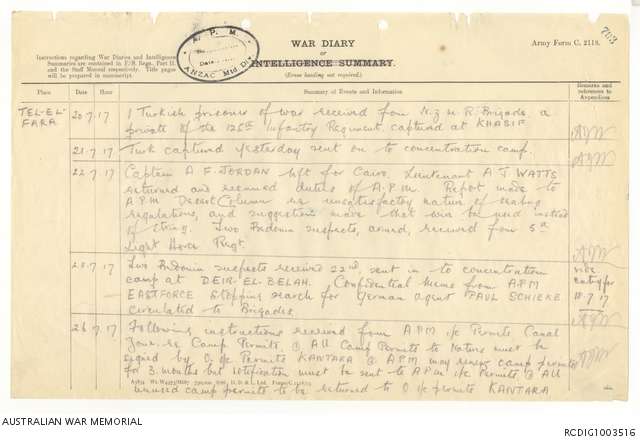 763
WAR DIARY
or
INTELLIGENCE SUMMARY.
(Erase heading not required.)
Army Form C. 2118.
Instructions regarding War Diaries and Intelligence
Summaries are contained in F.S. Regs., Part II.
and the Staff Manual respectively. Title pages
will be prepared in manuscript.
A. P. M.
No.
Date
ANZAC Mtd Div
Place
Date
Hour
Summary of Events and Information
Remarks and
references to
Appendices
TEL-EL-
FARA
20.7.17
1 Turkish prisoner of war received from N.Z.M.R. Brigade, a
private of the 125th Infantry Regiment captured at KHASIF
21.7.17
Turk captured yesterday sent on to concentration camp.
22.7.17
Captain A F JORDAN left for Cairo. Lieutenant A J WATTS
returned and resumed duties of A.P.M. Report made to
A.P.M Desert Column re unsatisfactory nature of sealing
regulations, and suggestion made that wire be used instead
of string. Two Bedouin suspects, armed, received from 5th
Light Horse Regt.
23.7.17
Two Bedouin suspects received 22nd sent in to concentration
camp at DEIR-EL-BELAH. Confidential memo from APM
EASTFORCE stopping search for German agent PAUL SCHIEKE
circulated to Brigades.
vide
entry for
10.7.17
26.7.17
Following instructions received from APM i/c Permits Canal
Zone re Camp Permits. ① All Camp Permits to Natives must be
signed by O i/c Permits KANTARA ② APM may renew camp permits
for 3 months but notification must be sent to APM i/c Permits ③ All
unused camp permits to be returned to O i/c permits KANTARA
AUSTRALIAN WAR MEMORIAL
RCDIG1003516